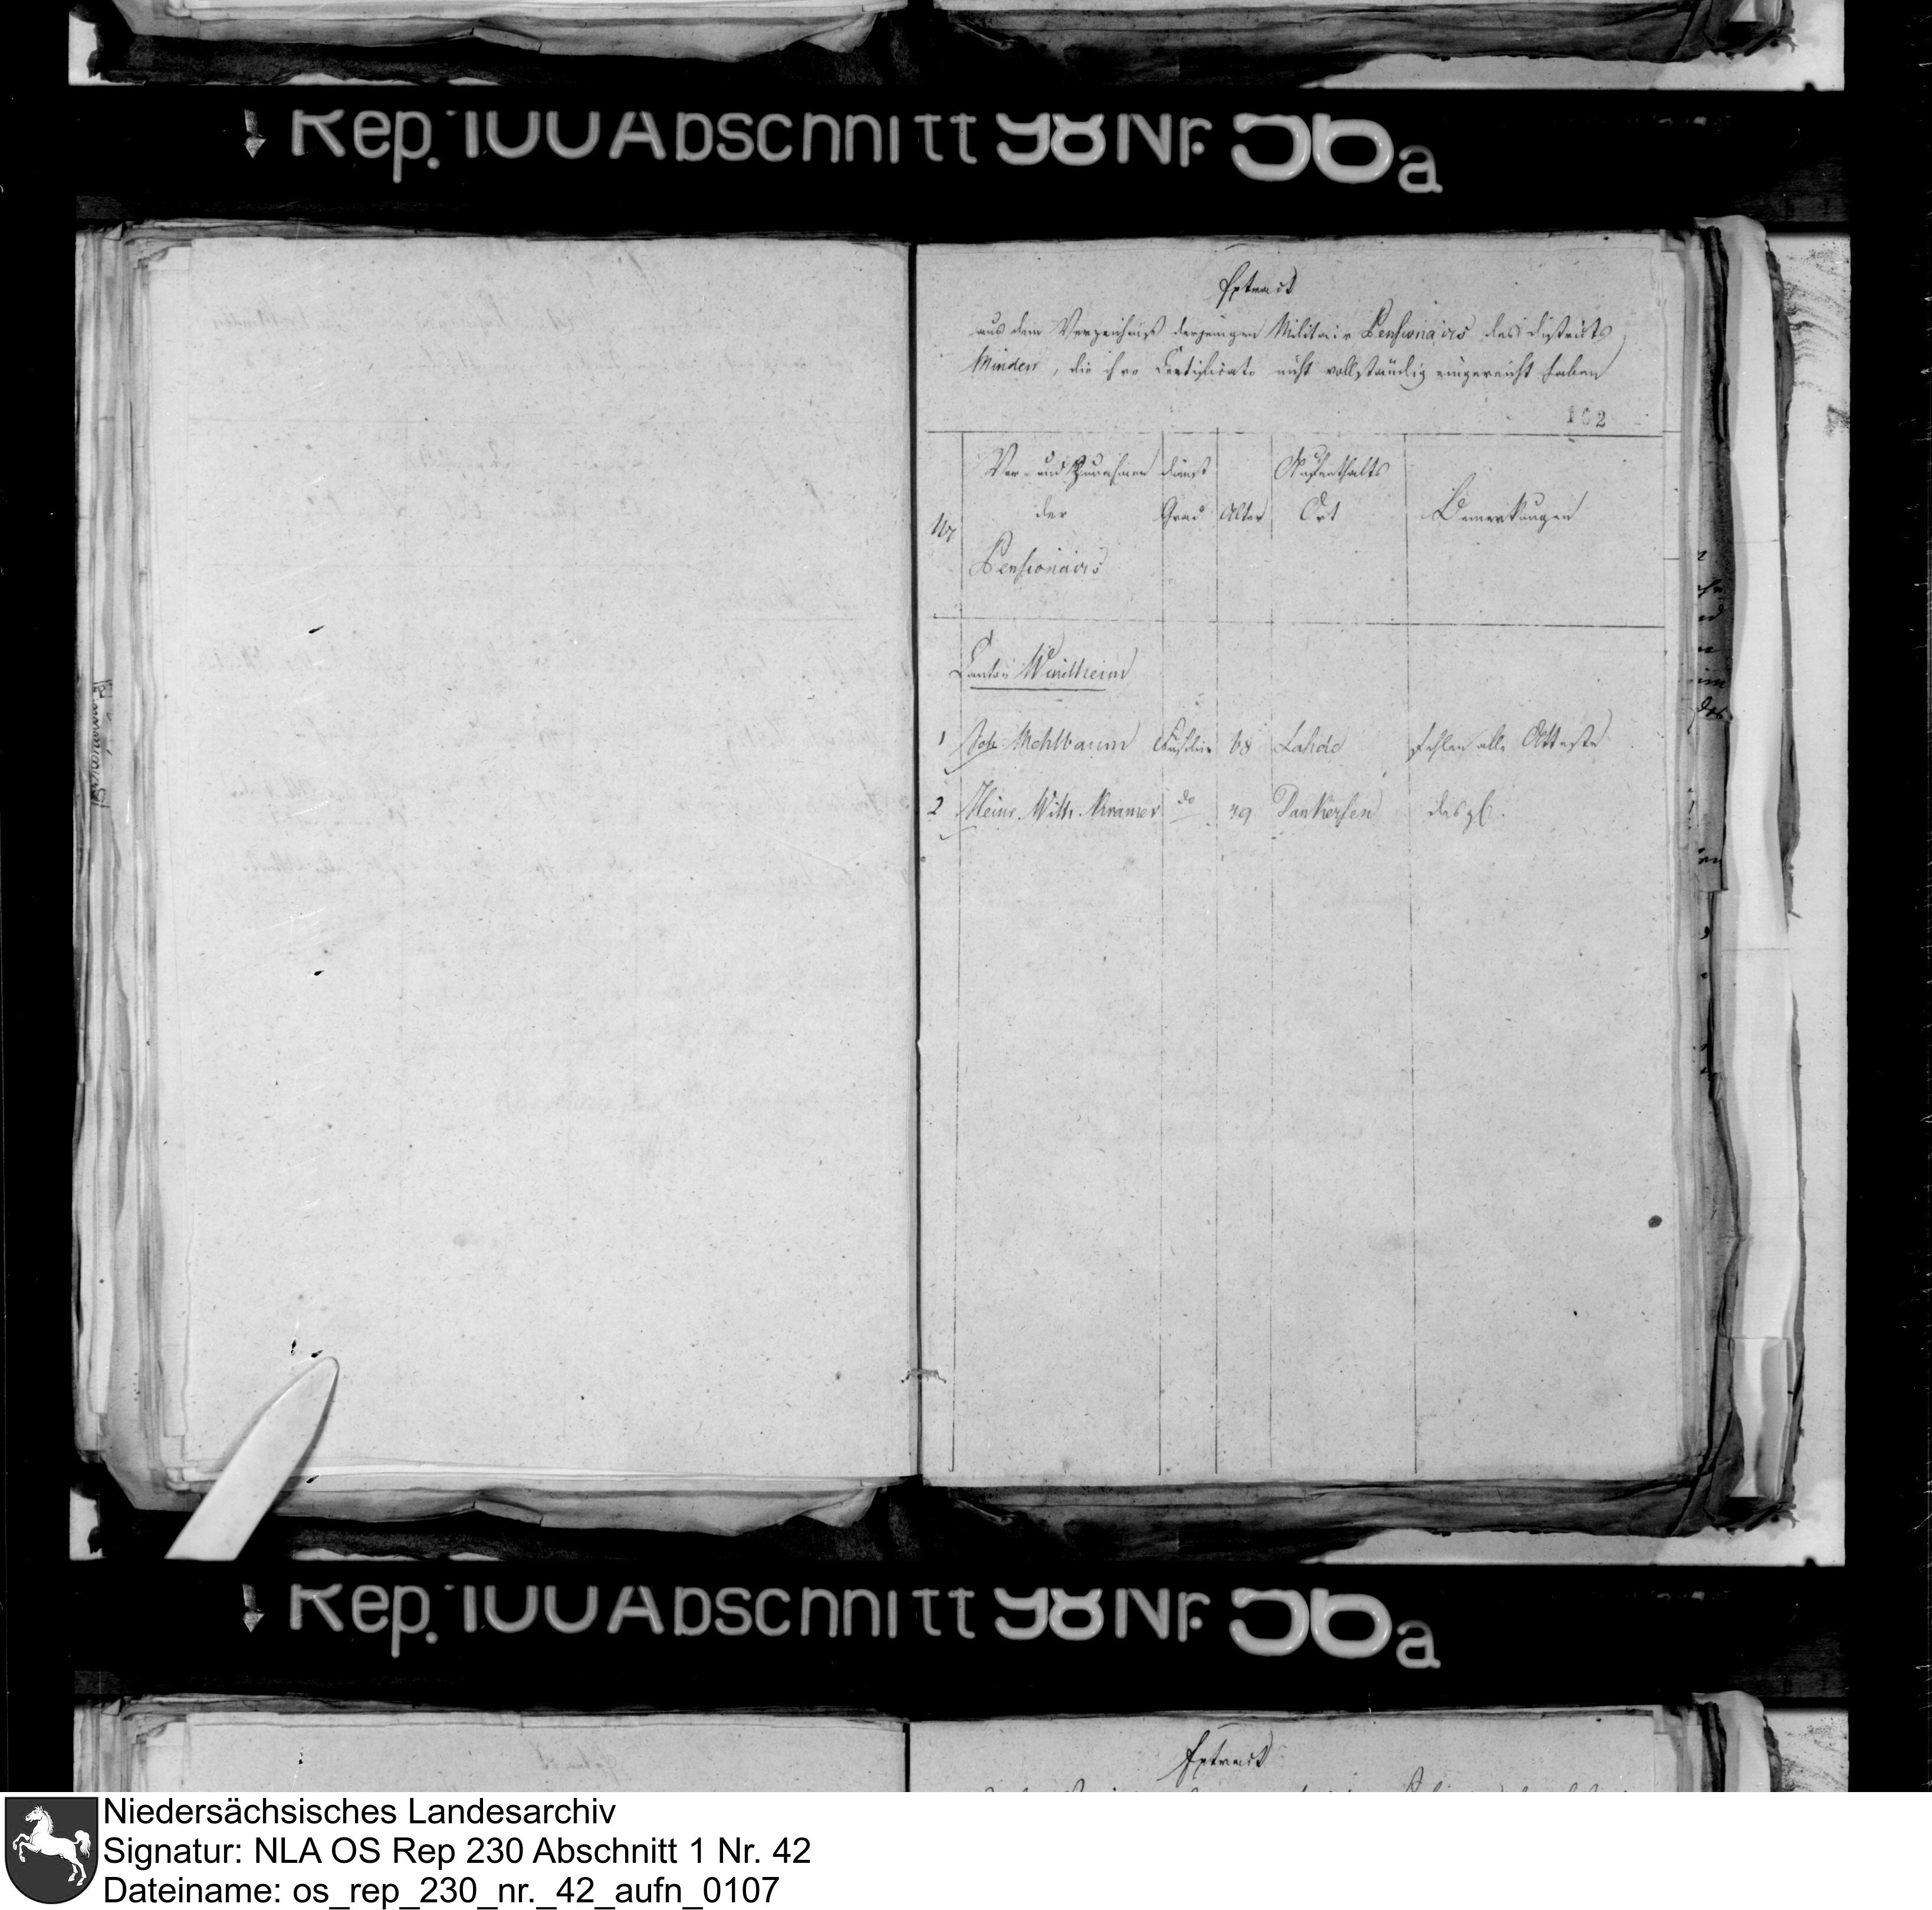 Rep. 100 Abschnitt 98 Nr. 56a
Extract
aus dem Verzeichniß derjenigen Militair Pensionairs des Districts
Minden, die ihre Certificate nicht vollständig eingereicht haben
102
Vor- und Zunahmen Dienst Aufenthalts
der Grad Alter Ort Bemerkungen
Nr
Pensionairs
Canton Windheim
1 Joh. Mehlbaum 68 Lahde fehlen alle Atteste
2 Heinr. Wilh. Kramer do 39 Dankersen desgl.
Rep. 100 Abschnitt 98 Nr. 56a
Extract
Niedersächsisches Landesarchiv
Signatur: NLA OS Rep 230 Abschnitt 1 Nr. 42
Dateiname: os_rep_230_nr._42_aufn_0107